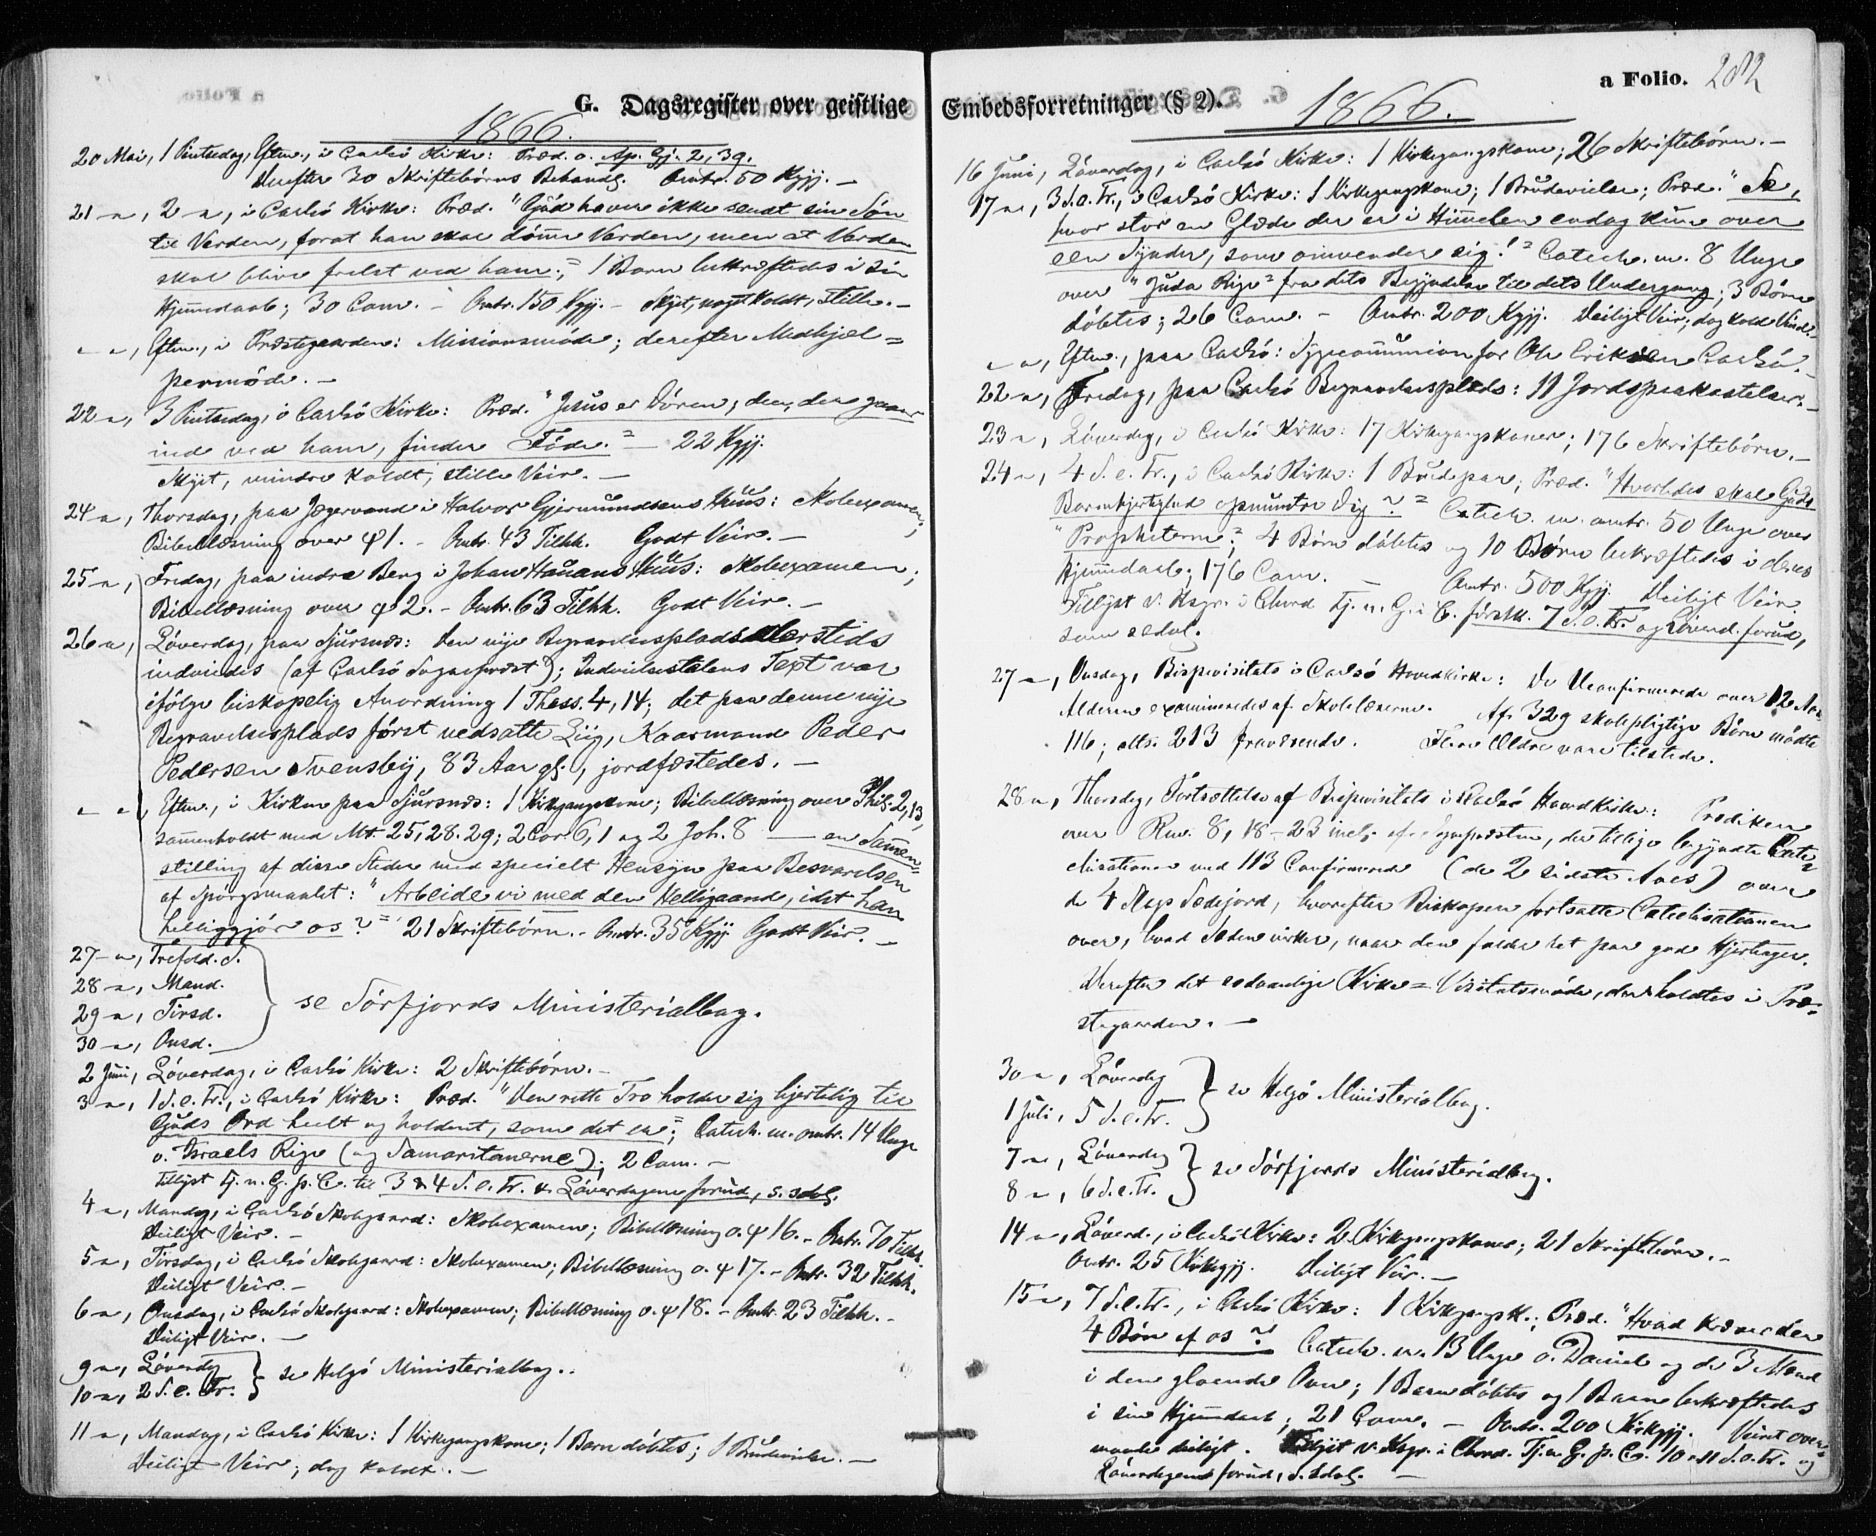 G. Dagsregister over geistlige
1866.
20 Mai, 1 Pintsedag, Efterm., i Carlsö Kirke: Præd. o. Ap. Gj. 2, 39.
Derefter 30 Skriftebörns Behandlg. Omtr. 50 Kgjg. —
21 —, 2 —, i Carlsö Kirke: Præd. "Gud haver ikke sendt sin Sön
til Verden, forat han skal dömme Verden, men at Verden
skal blive frelst ved ham"; 1 Barn bekræftedes i sin
Hjemmedaab; 30 Com. — Omtr. 150 Kgjg. — Skyet, noget koldt, stille. —
— —, Efterm., i Præstegaarden: Missionsmöde; derefter Medhjæl=
permöde. —
22 —, 3 Pintsedag, i Carlsö Kirke: Præd. "Jesus er Dören; den, der gaaer
ind ved ham, finder Föde." — 22 Kgjg.
Skyet, mindre koldt, stille Veir. —
24 —, Thorsdag, paa Jægervand i Halvor Gjermundsens Huus: Skoleexamen;
Bibellæsning over ψ 1. — Omtr. 43 Tilhh. Godt Veir. —
25 —, Fredag, paa indre Berg i Johan Hauans Huus: Skoleexamen;
Bibellæsning over ψ 2. — Omtr. 63 Tilhh. Godt Veir. —
26 —, Löverdag, paa Sjursnæs: Den nye Begravelsesplads dersteds
indviedes (af Carlsö Sognepræst); Indvielsestalens Text var
ifölge biskopelig Anordning 1 Thess. 4, 14; det paa denne nye
Begravelsesplads först nedsatte Liig, Kaarmand Peder
Pedersen Svensby, 83 Aar gl., jordfæstedes. —
— —, Efterm., i Kirken paa Sjursnæs: 1 Kirkegangskone; Bibellæsning over Phil. 2, 13,
sammenholdt med Mt. 25, 28. 29; 2 Cor. 6, 1 og 2 Joh. 8 — en Sammen=
stilling af disse Steder med specielt Hensyn paa Besvarelsen
af Spörgsmaalet: "Arbeide vi med den Helligaand, idet han
helliggjör os?" 21 Skriftebörn. — Omtr. 35 Kgjg. Godt Veir. —
27 —, Trefold. S.
28 —, Mand.
29 —, Tirsd.
30 —, Onsd.
se Sörfjords Ministerialbog.
2 Juni, Löverdag, i Carlsö Kirke: 2 Skriftebörn. —
3 —, 1 S. e. Tr., i Carlsö Kirke: Præd. "Den rette Tro holder sig hjertelig til
Guds Ord heelt og holdent, som det er"; Catech. m. omtr. 14 Unge
o. Israels Rige (og Samaritanerne); 2 Com. —
Tillyst Tj. n. G. p. C. til 3 & 4 S. e. Tr. & Löverdagene forud, s. sdvl.
4 —, Mandag, i Carlsö Skolegaard: Skoleexamen; Bibellæsning o. ψ 16. — Omtr. 70 Tilhh.
Deiligt Veir. —
5 —, Tirsdag, i Carlsö Skolegaard: Skoleexamen; Bibellæsning o. ψ 17. — Omtr. 32 Tilhh.
Deiligt Veir. —
6 —, Onsdag, i Carlsö Skolegaard: Skoleexamen; Bibellæsning o. ψ 18. — Omtr. 23 Tilhh. —
Deiligt Veir. —
9 —, Löverdag
10 —, 2 S. e. Tr.
se Helgö Ministerialbog.
11 —, Mandag, i Carlsö Kirke: 1 Kirkegangskone; 1 Barn döbtes; 1 Brudevielse. —
Deiligt Veir; dog koldt. —
Embedsforretninger (§ 2).
a Folio. 282
1866.
16 Juni, Löverdag, i Carlsö Kirke: 1 Kirkegangskone; 26 Skriftebörn. —
17 —, 3 S. e. Tr., i Carlsö Kirke: 1 Kirkegangskone; 1 Brudevielse; Præd. "Se,
hvor stor en Glæde der er i Himmelen endog kun over
een Synder, som omvender sig!" Catech. m. 8 Unge
over "Juda Rige" fra dets Begyndelse til dets Undergang; 3 Börn
döbtes; 26 Com. — Omtr. 200 Kgjg. Deiligt Veir; dog kold Vind. —
— —, Efterm., paa Carlsö: Sygecommunion for Ole Eriksen Carlsö. —
22 —, Fredag, paa Carlsö Begravelsesplads: 11 Jordspaakastelser. —
23 —, Löverdag, i Carlsö Kirke: 17 Kirkegangskoner; 176 Skriftebörn. —
24 —, 4 S. e. Tr., i Carlsö Kirke: 1 Brudepar; Præd. "Hvorledes skal Guds
Barmhjertighed opmuntre Dig?" Catech. m. omtr. 50 Unge over
"Propheterne"; 4 Börn döbtes og 10 Börn bekræftedes i deres
Hjemmedaab; 176 Com. — Omtr. 500 Kgjg. Deiligt Veir.
Tillyst v. Kspr. i Chord Tj. n. G. i C. förstk. 7 S. e. Tr. og Löverd. forud,
som sedvl.
27 —, Onsdag, Bispevisitats i Carlsö Hovedkirke: De Uconfirmerede over 12 Aars
Alderen examineredes af Skolelærerne. Af 329 skolepligtige Börn mödte
116; altsaa 213 fraværende. Flere Ældre vare tilstede.
28 —, Thorsdag, Fortsættelse af Bispevisitats i Carlsö Hovedkirke: Prædiken
over Rom. 8, 18–23 incl. af Sognepræsten, der tillige begyndte Cate=
chisationen med 113 Confirmerede (de 2 sidste Aars) over
de 4 Slags Sædejord, hvorefter Biskopen fortsatte Catechisationen
over, hvad Sæden virker, naar den falder let paa gode Hjerteager.
Derefter det sædvanlige Kirke= Visitatsmöde, der holdtes i Præ=
stegaarden. —
30 —, Löverdag
1 Juli, 5 S. e. Tr.
se Helgö Ministerialbog.
7 —, Löverdag
8 —, 6 S. e. Tr.
se Sörfjords Ministerialbog.
14 —, Löverd., i Carlsö Kirke: 2 Kirkegangskoner; 21 Skriftebörn. —
Omtr. 25 Kirkegjg. Deiligt Veir. —
15 —, 7 S. e. Tr., i Carlsö Kirke: 1 Kirkegangsk.; Præd. "Hvad kræver den
4 Bön af os?" Catech. m. 13 Unge o. Daniel og de 3 Mænd
i den gloende Ovn; 1 Barn döbtes og 1 Barn bekræftedes
i sin Hjemmedaab; 21 Comm. — Omtr. 200 Kirkgjg. Veiret over=
maade deiligt. Tillyst v. Kspr. i Chord. Tj. n. G. p. C. 10 & 11 S. e. Tr. og
Löverdagene forud, s. sdvl. —